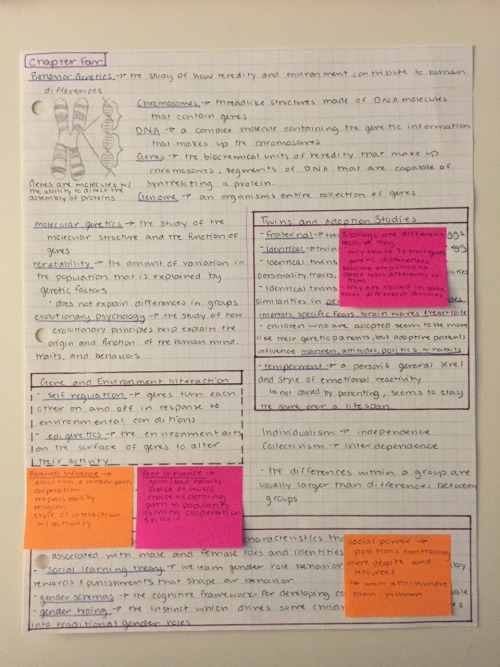 Chapter Four
Behavior Genetics → the study of how heredity and environment contribute to human
differences
Chromosomes → threadlike structures made of DNA molecules
that contain genes
DNA → a complex molecule containing the genetic information
that makes up the chromosomes
Genes → the biochemical units of heredity that make up
chromosomes, segments of DNA that are capable of
synthesizing a protein.
Genome → an organisms entire collection of genes
Genes are molecules w/
the ability to direct the
assembly of proteins
molecular genetics → the study of the
molecular structure and the function of
genes
heretability → the amount of variation in
the population that is explained by
genetic factors
· does not explain differences in groups
evolutionary psychology → the study of how
evolutionary principles help explain the
origin and function of the human mind,
traits, and behaviors
Twins and Adoption Studies
- Fraternal →
- Identical → twin
- Identical twins
personality traits,
- Identical twins
similarities in
interests, specific fears, brain waves, heart rate
- children who are accepted seem to be more
like their genetic parents, but adoptive parents
influence manners, attitudes, politics → habits
siblings are different
because they
only share ½ their genes
genetic differences
become amplified as
people react differently to
them
They are raised in
different families
- temperment → a person's general level
and style of emotional reactivity
↳ not caused by parenting, seems to stay
the same over a lifespan
Gene and Environment Interaction
- self regulation → genes turn each
other on and off in response to
environmental conditions
- epigenetics → the environment acts
on the surface of genes to alter
their activity
Individualism → independence
Collectivism → interdependence
· the differences within a group are
usually larger than differences between
groups
Parental Influence →
education & career path
cooperation
responsibility
religion
style of interaction
w/ authority
Peer influence →
good/bad habits
choice of music
choice of clothing
path to popularity
learning cooperation
skills
characteristics
associated with male and female roles and identities
- social learning theory → we learn gender role behavior by
rewards & punishments that shape our behavior
- gender schemas → the cognitive frameworks for developing
- gender typing → the instinct which drives some
into traditional gender roles
social power →
positions controlling
more people and
↳ men
than women